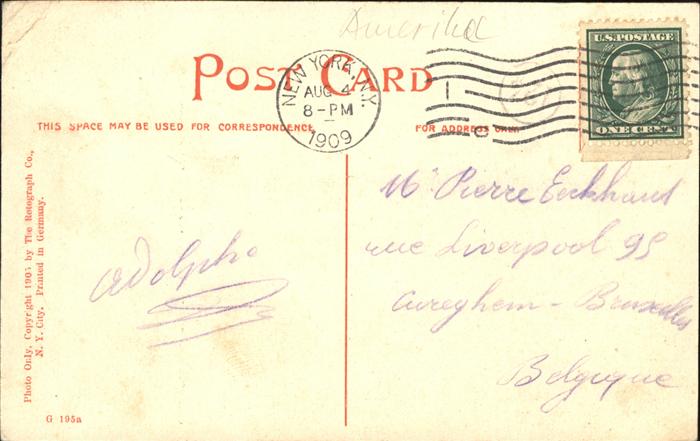 Amerika
POST CARD
NEW YORK, N.Y.
AUG 4
8-PM
1909
U.S. POSTAGE
ONE CENT
THIS SPACE MAY BE USED FOR CORRESPONDENCE
FOR ADDRESS ONLY
Photo Only, Copyright 1905 by The Rotograph Co.,
N. Y. City, Printed in Germany.
Adolphe
Mr Pierre Eeckhout
rue Liverpool 95
Cureghem - Bruxelles
Belgique
G 195a